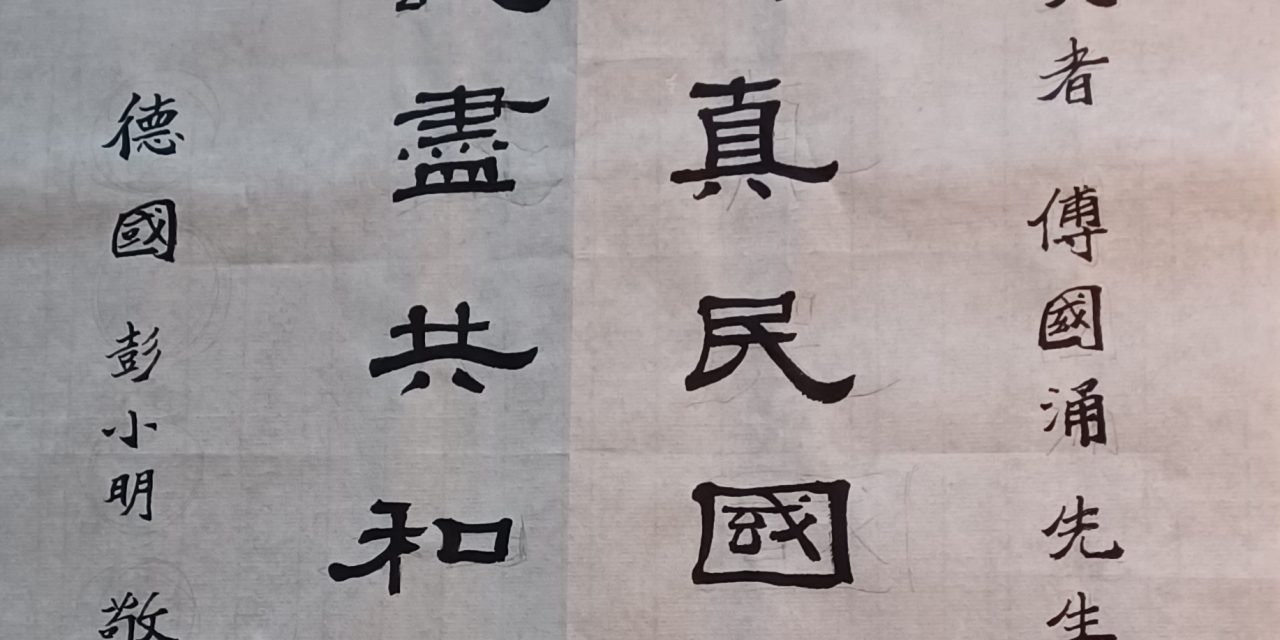 者 傅國涌先生
真民國
盡共和
德國 彭小明 敬